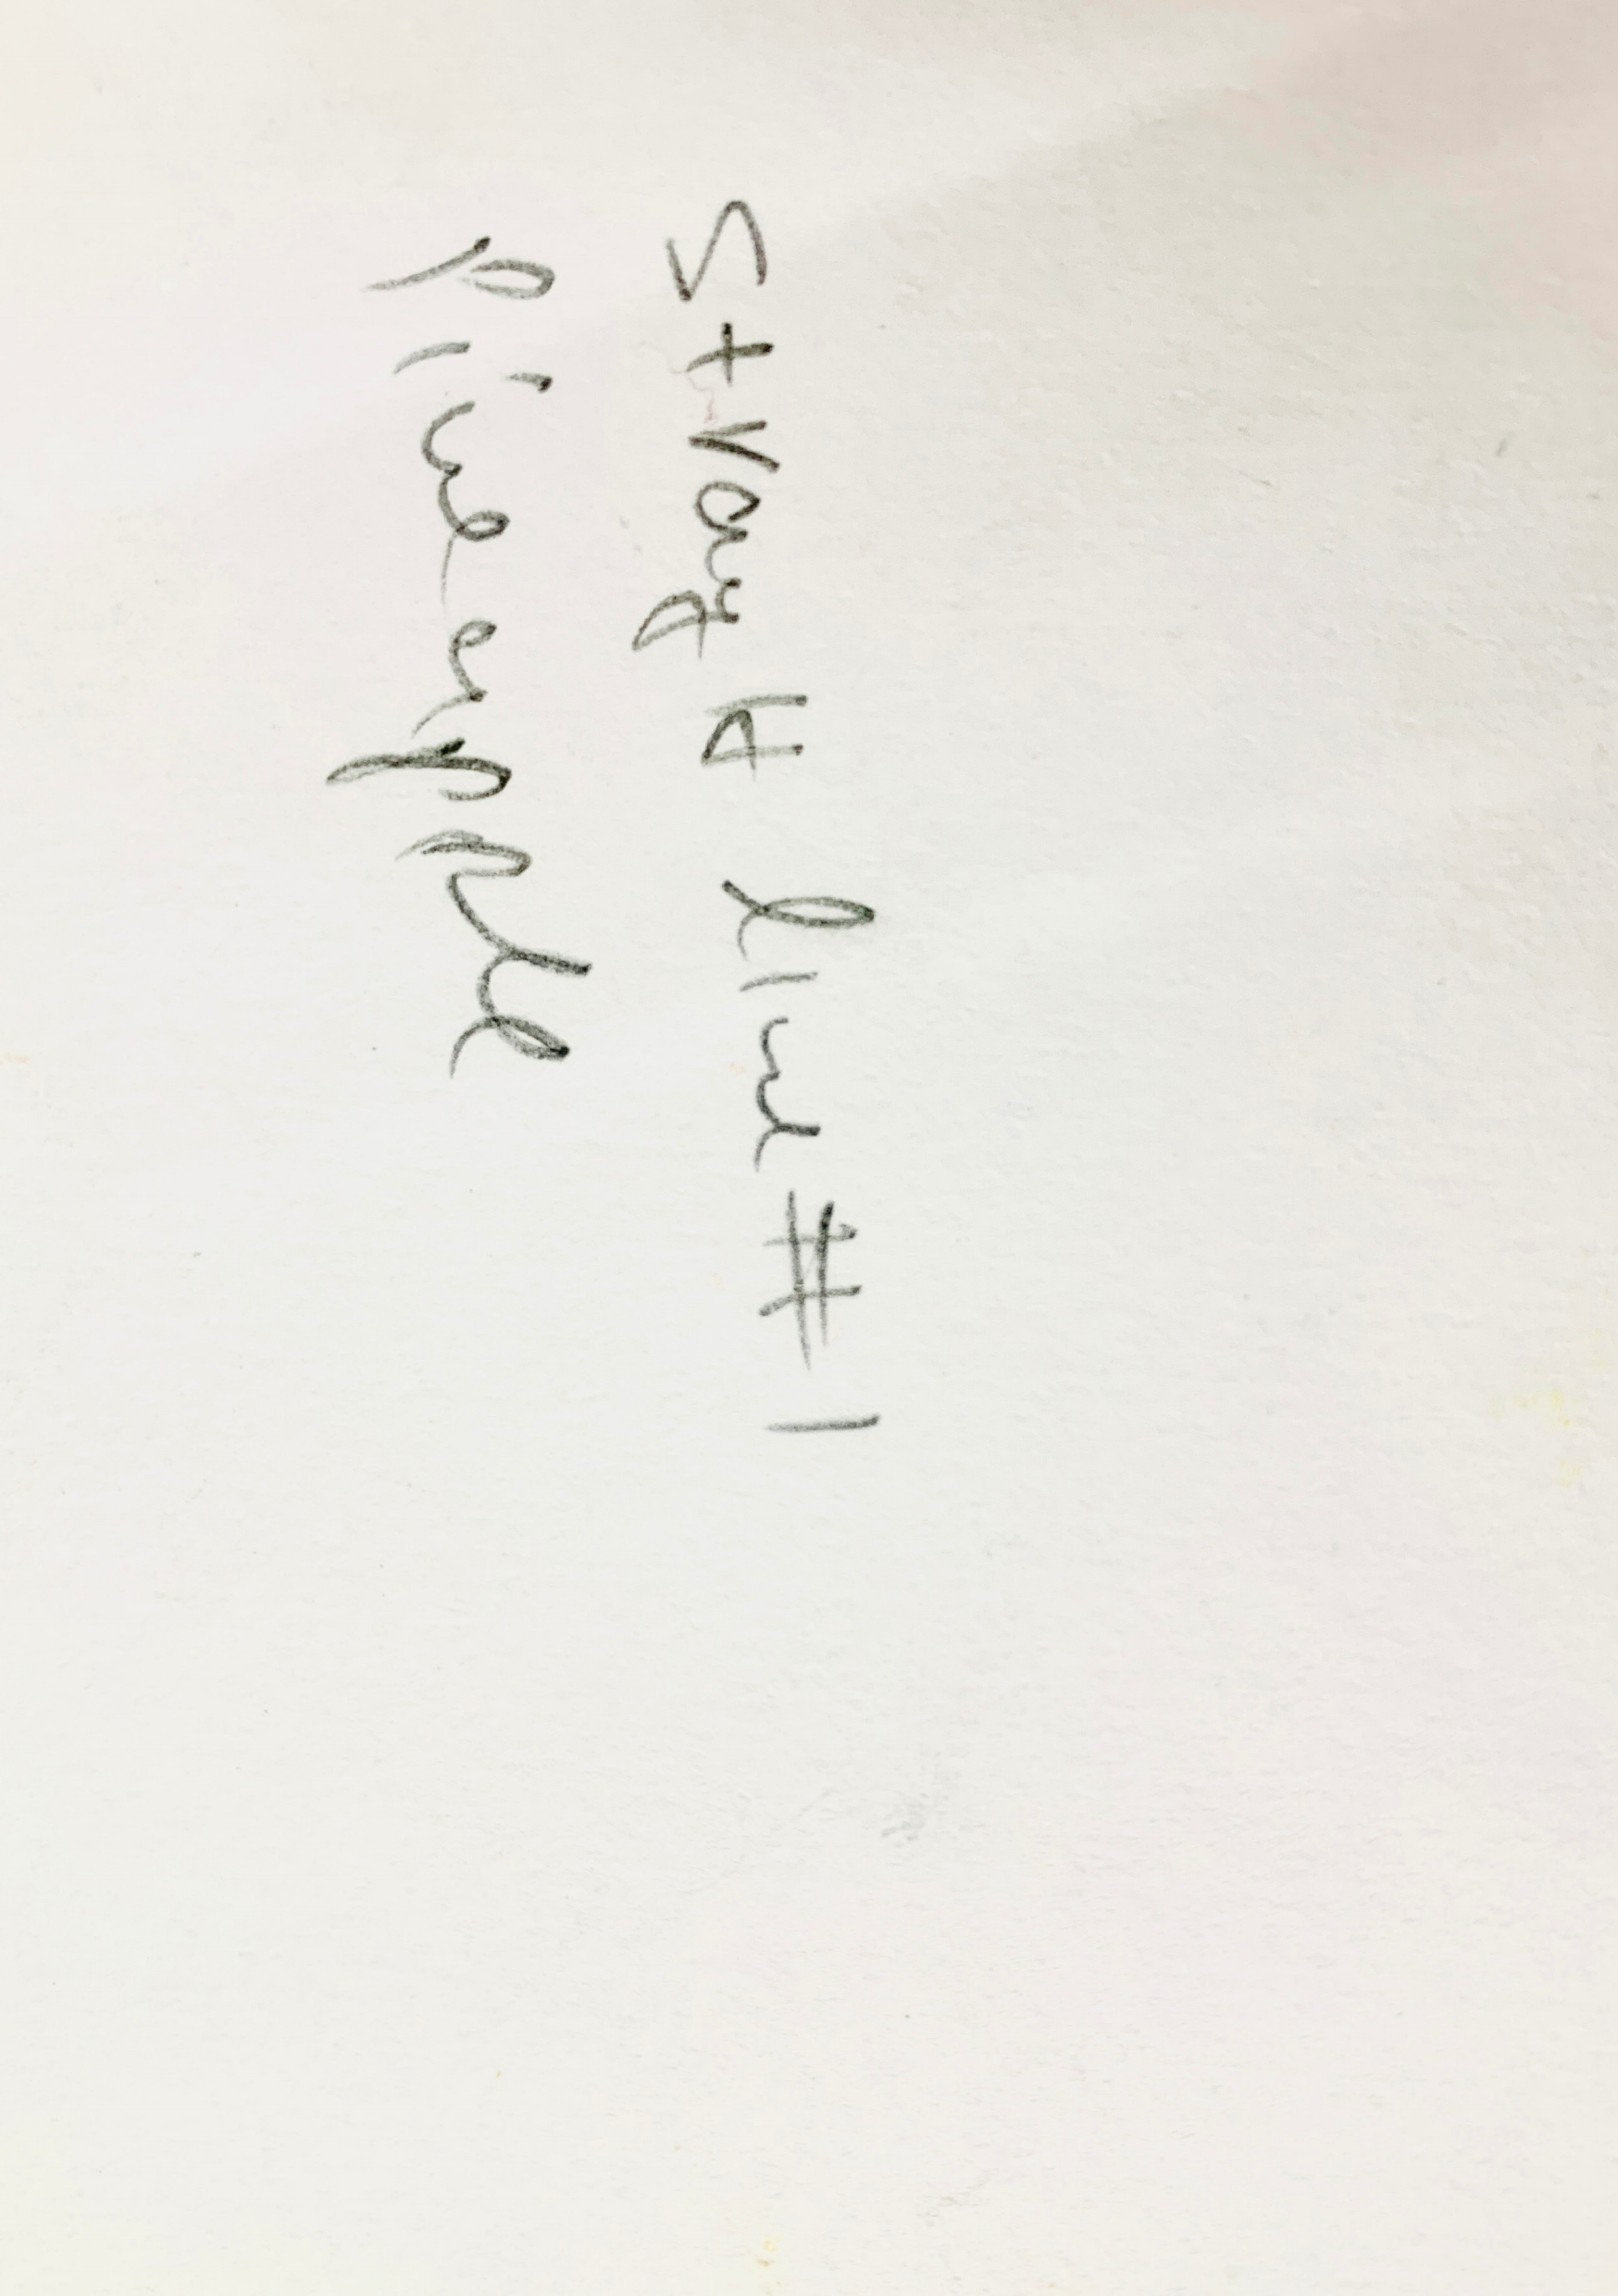 Straight line #1
Pineapple